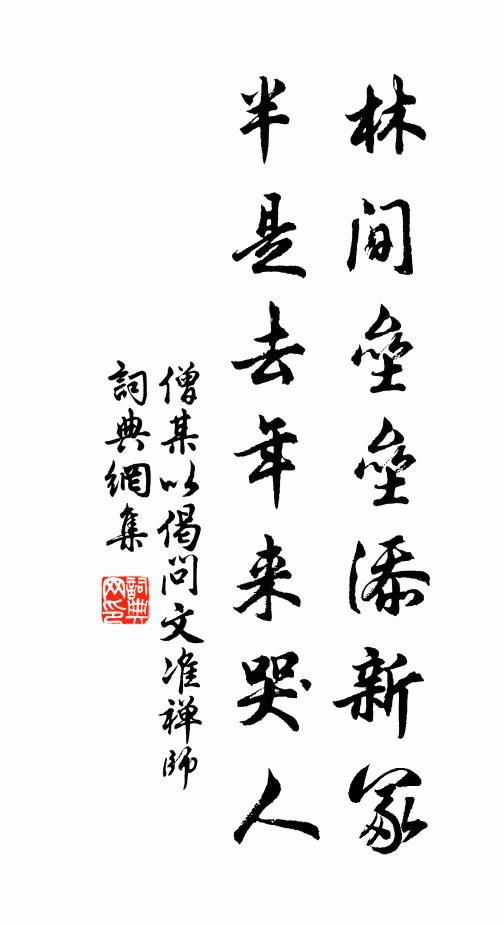 林间垒垒添新冢
半是去年来哭人
僧某以偈问文准禅師
詞典網集
詞典
网印